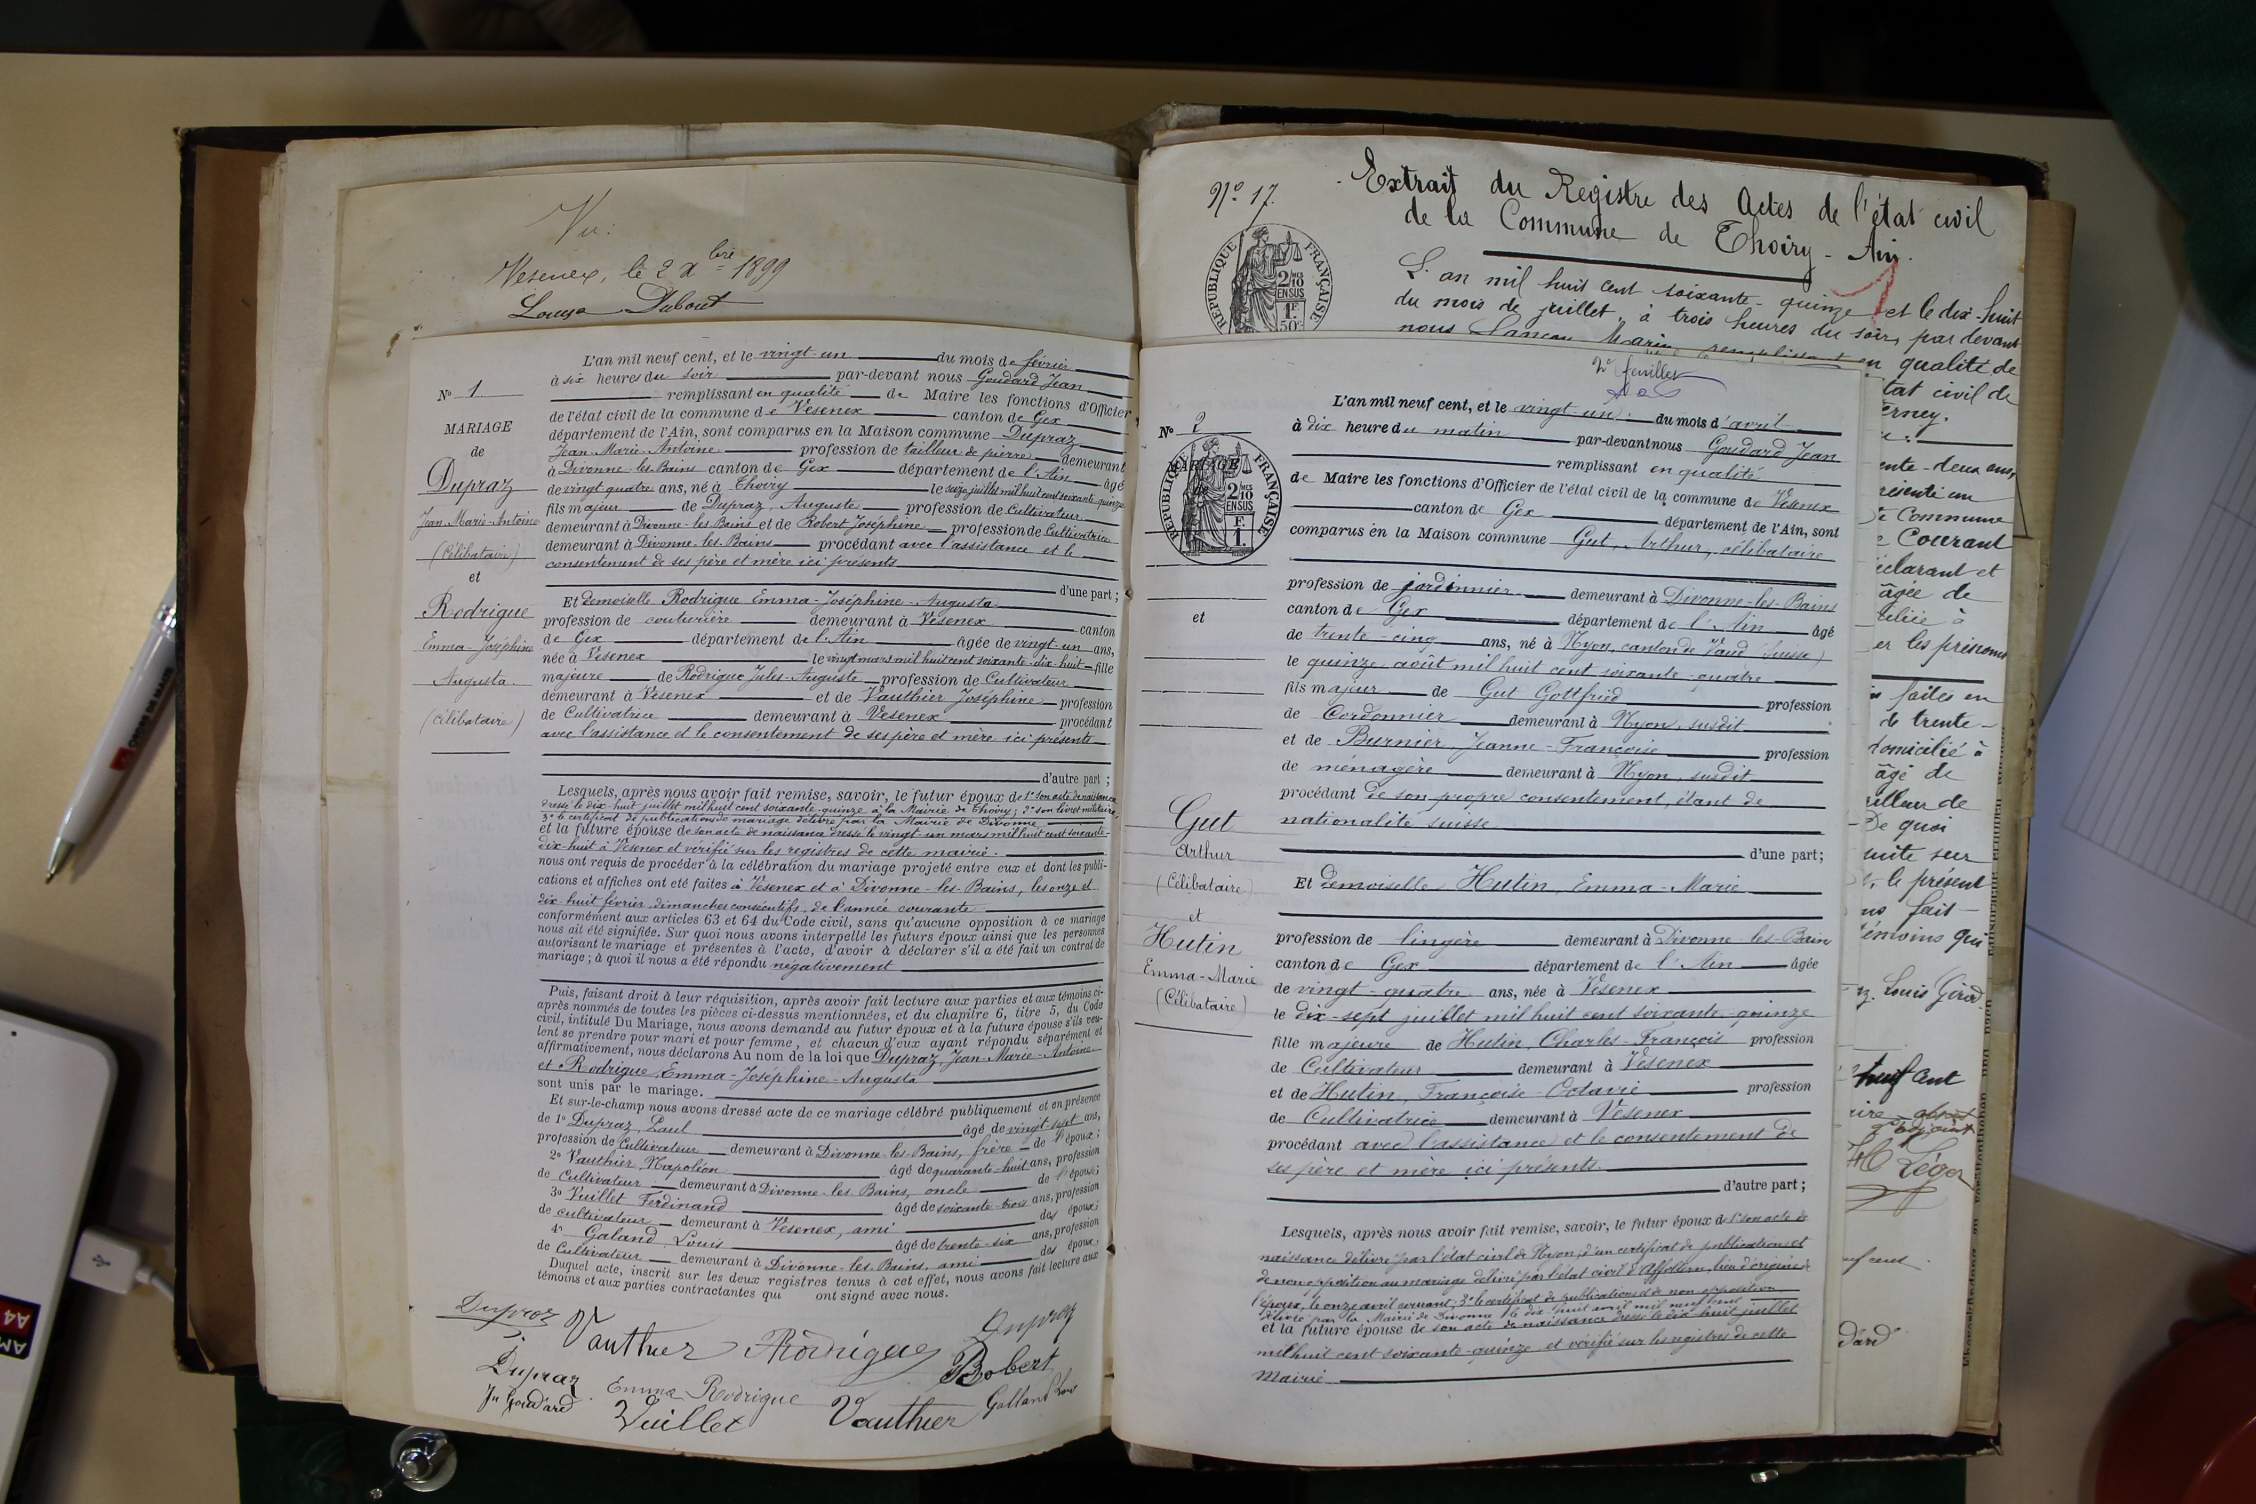 Vu:
Vesenex, le 2 Xbre 1899
Louise Dubout
L'an mil neuf cent, et le vingt-un du mois de février
à six heures du soir par-devant nous Goudard Jean
remplissant en qualité de Maire les fonctions d'Officier
de l'état civil de la commune de Vésenex canton de Gex
département de l'Ain, sont comparus en la Maison commune Dupraz
Jean-Marie-Antoine profession de tailleur de pierre demeurant
à Divonne-les-Bains canton de Gex département de l'Ain âgé
de vingt quatre ans, né à Thoiry le seize juillet mil huit cent soixante-quinze
fils majeur de Dupraz, Auguste profession de Cultivateur
demeurant à Divonne-les-Bains et de Robert Joséphine profession de Cultivatrice
demeurant à Divonne-les-Bains procédant avec l'assistance et le
consentement de ses père et mère ici présents
d'une part;
Et demoiselle Rodrigue Emma-Joséphine-Augusta
profession de couturière demeurant à Vésenex canton
de Gex département de l'Ain âgée de vingt-un ans,
née à Vésenex le vingt mars mil huit cent soixante-dix-huit fille
majeure de Rodrigue Jules-Auguste profession de Cultivateur
demeurant à Vésenex et de Vauthier Joséphine profession
de Cultivatrice demeurant à Vesenex procédant
avec l'assistance et le consentement de ses père et mère ici présents
d'autre part;
Lesquels, après nous avoir fait remise, savoir, le futur époux de 1° son acte de naissance
dressé le dix-huit juillet mil huit cent soixante-quinze à la Mairie de Thoiry; 2° son livret militaire
3° le certificat de publications de mariage délivré par la Mairie de Divonne
et la future épouse de son acte de naissance dressé le vingt-un mars mil huit cent soixante-
dix-huit à Vésenex et vérifié sur les registres de cette mairie.
nous ont requis de procéder à la célébration du mariage projeté entre eux et dont les publi-
cations et affiches ont été faites à Vésenex et à Divonne-les-Bains, les onze et
dix-huit février, dimanches consécutifs, de l'année courante
conformément aux articles 63 et 64 du Code civil, sans qu'aucune opposition à ce mariage
nous ait été signifiée. Sur quoi nous avons interpellé les futurs époux ainsi que les personnes
autorisant le mariage et présentes à l'acte, d'avoir à déclarer s'il a été fait un contrat de
mariage; à quoi il nous a été répondu négativement
Puis, faisant droit à leur réquisition, après avoir fait lecture aux parties et aux témoins ci-
après nommés de toutes les pièces ci-dessus mentionnées, et du chapitre 6, titre 5, du Code
civil, intitulé Du Mariage, nous avons demandé au futur époux et à la future épouse s'ils veu-
lent se prendre pour mari et pour femme, et chacun d'eux ayant répondu séparément et
affirmativement, nous déclarons Au nom de la loi que Dupraz, Jean-Marie-Antoine
et Rodrigue, Emma-Joséphine-Augusta
sont unis par le mariage.
Et sur-le-champ nous avons dressé acte de ce mariage célébré publiquement et en présence
de 1° Dupraz Paul âgé de vingt sept ans,
profession de Cultivateur demeurant à Divonne-les-Bains, frère de l'époux;
2° Vauthier, Napoléon âgé de quarante-huit ans, profession
de Cultivateur demeurant à Divonne-les-Bains, oncle de l'épouse;
3° Vuillet Ferdinand âgé de soixante-trois ans, profession
de cultivateur demeurant à Vésenex, ami des époux;
4° Galand Louis âgé de trente-six ans, profession
de Cultivateur demeurant à Divonne-les-Bains, ami des époux;
Duquel acte, inscrit sur les deux registres tenus à cet effet, nous avons fait lecture aux
témoins et aux parties contractantes qui ont signé avec nous.
Dupraz Vauthier Rodrigue Dupraz
Dupraz Robert
Jn Goudard Emma Rodrigue Galland Louis
Vuillet Vauthier
N° 1
MARIAGE
de
Dupraz
Jean-Marie-Antoine
(Célibataire)
et
Rodrigue
Emma-Joséphine
Augusta
(célibataire)
N° 17.
Extrait du Registre des Actes de l'état civil
de la Commune de Thoiry - Ain.
RÉPUBLIQUE FRANÇAISE
2/10 EN SUS
1F. 50c
L'an mil huit cent soixante-quinze et le dix-huit
du mois de juillet à trois heures du soir, par devant
nous
en qualité de
état civil de
2e feuillet
L'an mil neuf cent, et le vingt-un du mois d'avril
à dix heure du matin par-devant nous Goudard Jean
remplissant en qualité
de Maire les fonctions d'Officier de l'état civil de la commune de Vésenex
canton de Gex département de l'Ain, sont
comparus en la Maison commune Gut, Arthur, célibataire
profession de jardinier demeurant à Divonne-les-Bains
canton de Gex département de l'Ain âgé
de trente-cinq ans, né à Nyon, canton de Vaud (Suisse)
le quinze août mil huit cent soixante-quatre
fils majeur de Gut Gottfried profession
de Cordonnier demeurant à Nyon, susdit
et de Burnier Jeanne-Françoise profession
de ménagère demeurant à Nyon, susdit
procédant de son propre consentement, étant de
nationalité suisse
d'une part;
Et demoiselle Hutin, Emma-Marie
profession de lingère demeurant à Divonne-les-Bain
canton de Gex département de l'Ain âgée
de vingt-quatre ans, née à Vésenex
le dix-sept juillet mil huit cent soixante-quinze
fille majeure de Hutin, Charles-François profession
de Cultivateur demeurant à Vésenex
et de Hutin, Françoise-Octavie profession
de Cultivatrice demeurant à Vésenex
procédant avec l'assistance et le consentement de
ses père et mère ici présents.
d'autre part;
Lesquels, après nous avoir fait remise, savoir, le futur époux de 1° son acte de
naissance délivré par l'état civil de Nyon, d'un certificat de publications et
de non opposition au mariage délivré par l'état civil d'Affoltern, lieu d'origine de
l'époux, le onze avril courant; 3° le certificat de publications et de non opposition
délivré par la Mairie de Divonne le dix huit avril mil neuf cent
et la future épouse de son acte de naissance dressé le dix huit juillet
mil huit cent soixante-quinze et vérifié sur les registres de cette
Mairie
N° 2
MARIAGE
RÉPUBLIQUE FRANÇAISE
2/10 EN SUS
F. 1.
et
Gut
Arthur
(Célibataire)
et
Hutin
Emma-Marie
(Célibataire)
ente-deux ans,
présenté un
Commune
Courant
déclarant et
âgée de
à
er les prénoms
faites en
de trente-
domicilié à
âgé de
tailleur de
De quoi
suite sur
le présent
fait
témoins qui
Louis Girod
huit cent
adjoint
Léger
AM
A4